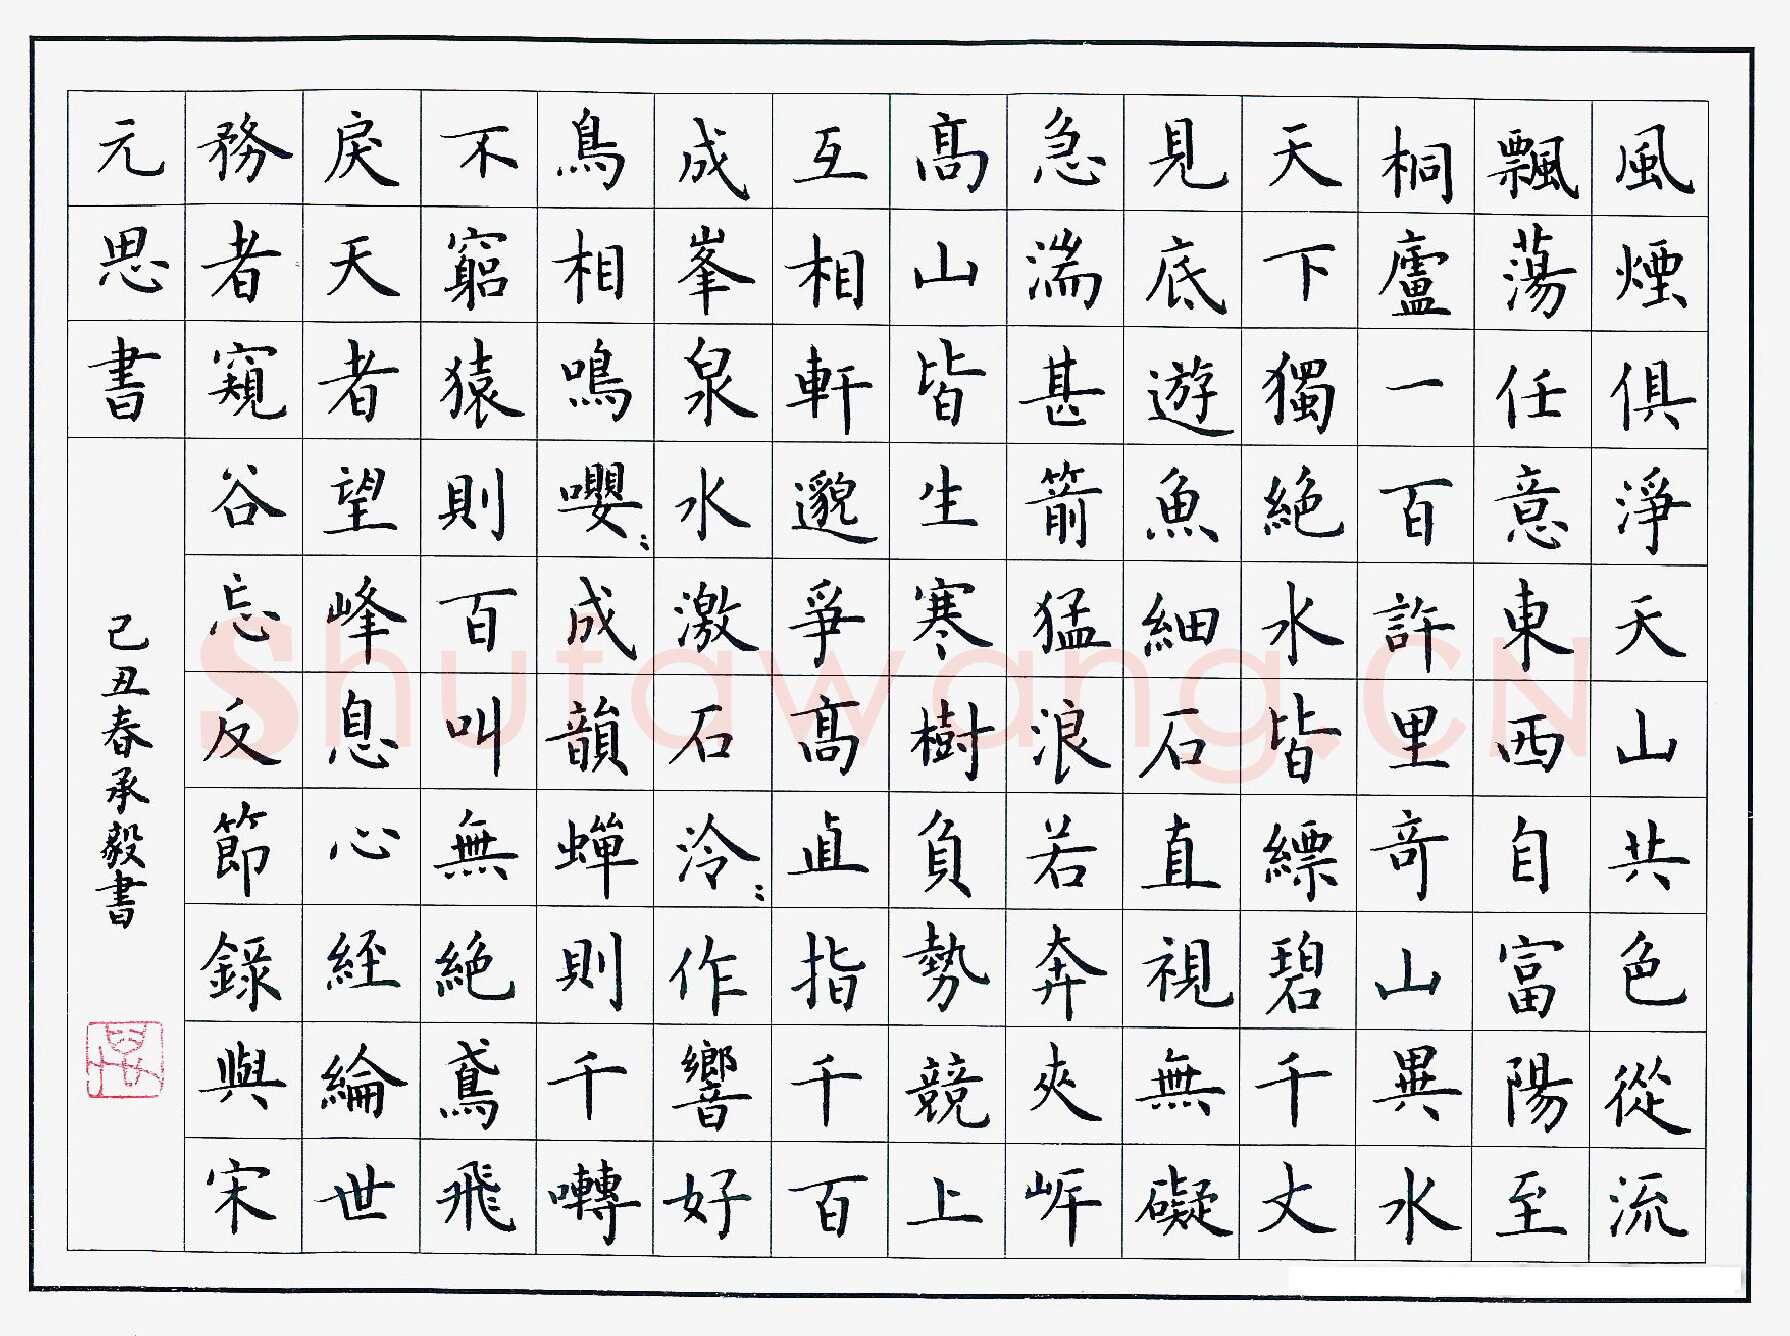 風煙俱淨天山共色從流
飄蕩任意東西自富陽至
桐廬一百許里奇山異水
天下獨絕水皆縹碧千丈
見底遊魚細石直視無礙
急湍甚箭猛浪若奔夾岸
高山皆生寒樹負勢競上
互相軒邈爭高直指千百
成峯泉水激石泠〻作響好
鳥相鳴嚶〻成韻蟬則千囀
不窮猿則百叫無絕鳶飛
戾天者望峰息心經綸世
務者窺谷忘反節錄與宋
元思書
己丑春承毅書
Shufawang.CN